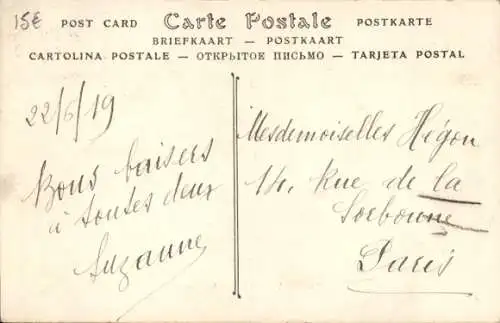 15€
POST CARD Carte Postale POSTKARTE
BRIEFKAART — POSTKAART
CARTOLINA POSTALE — ОТКРЫТОЕ ПИСЬМО — TARJETA POSTAL
22/6/19
Bons baisers
à toutes deux
Suzanne
Mesdemoiselles Hégon
14, Rue de la
Sorbonne
Paris